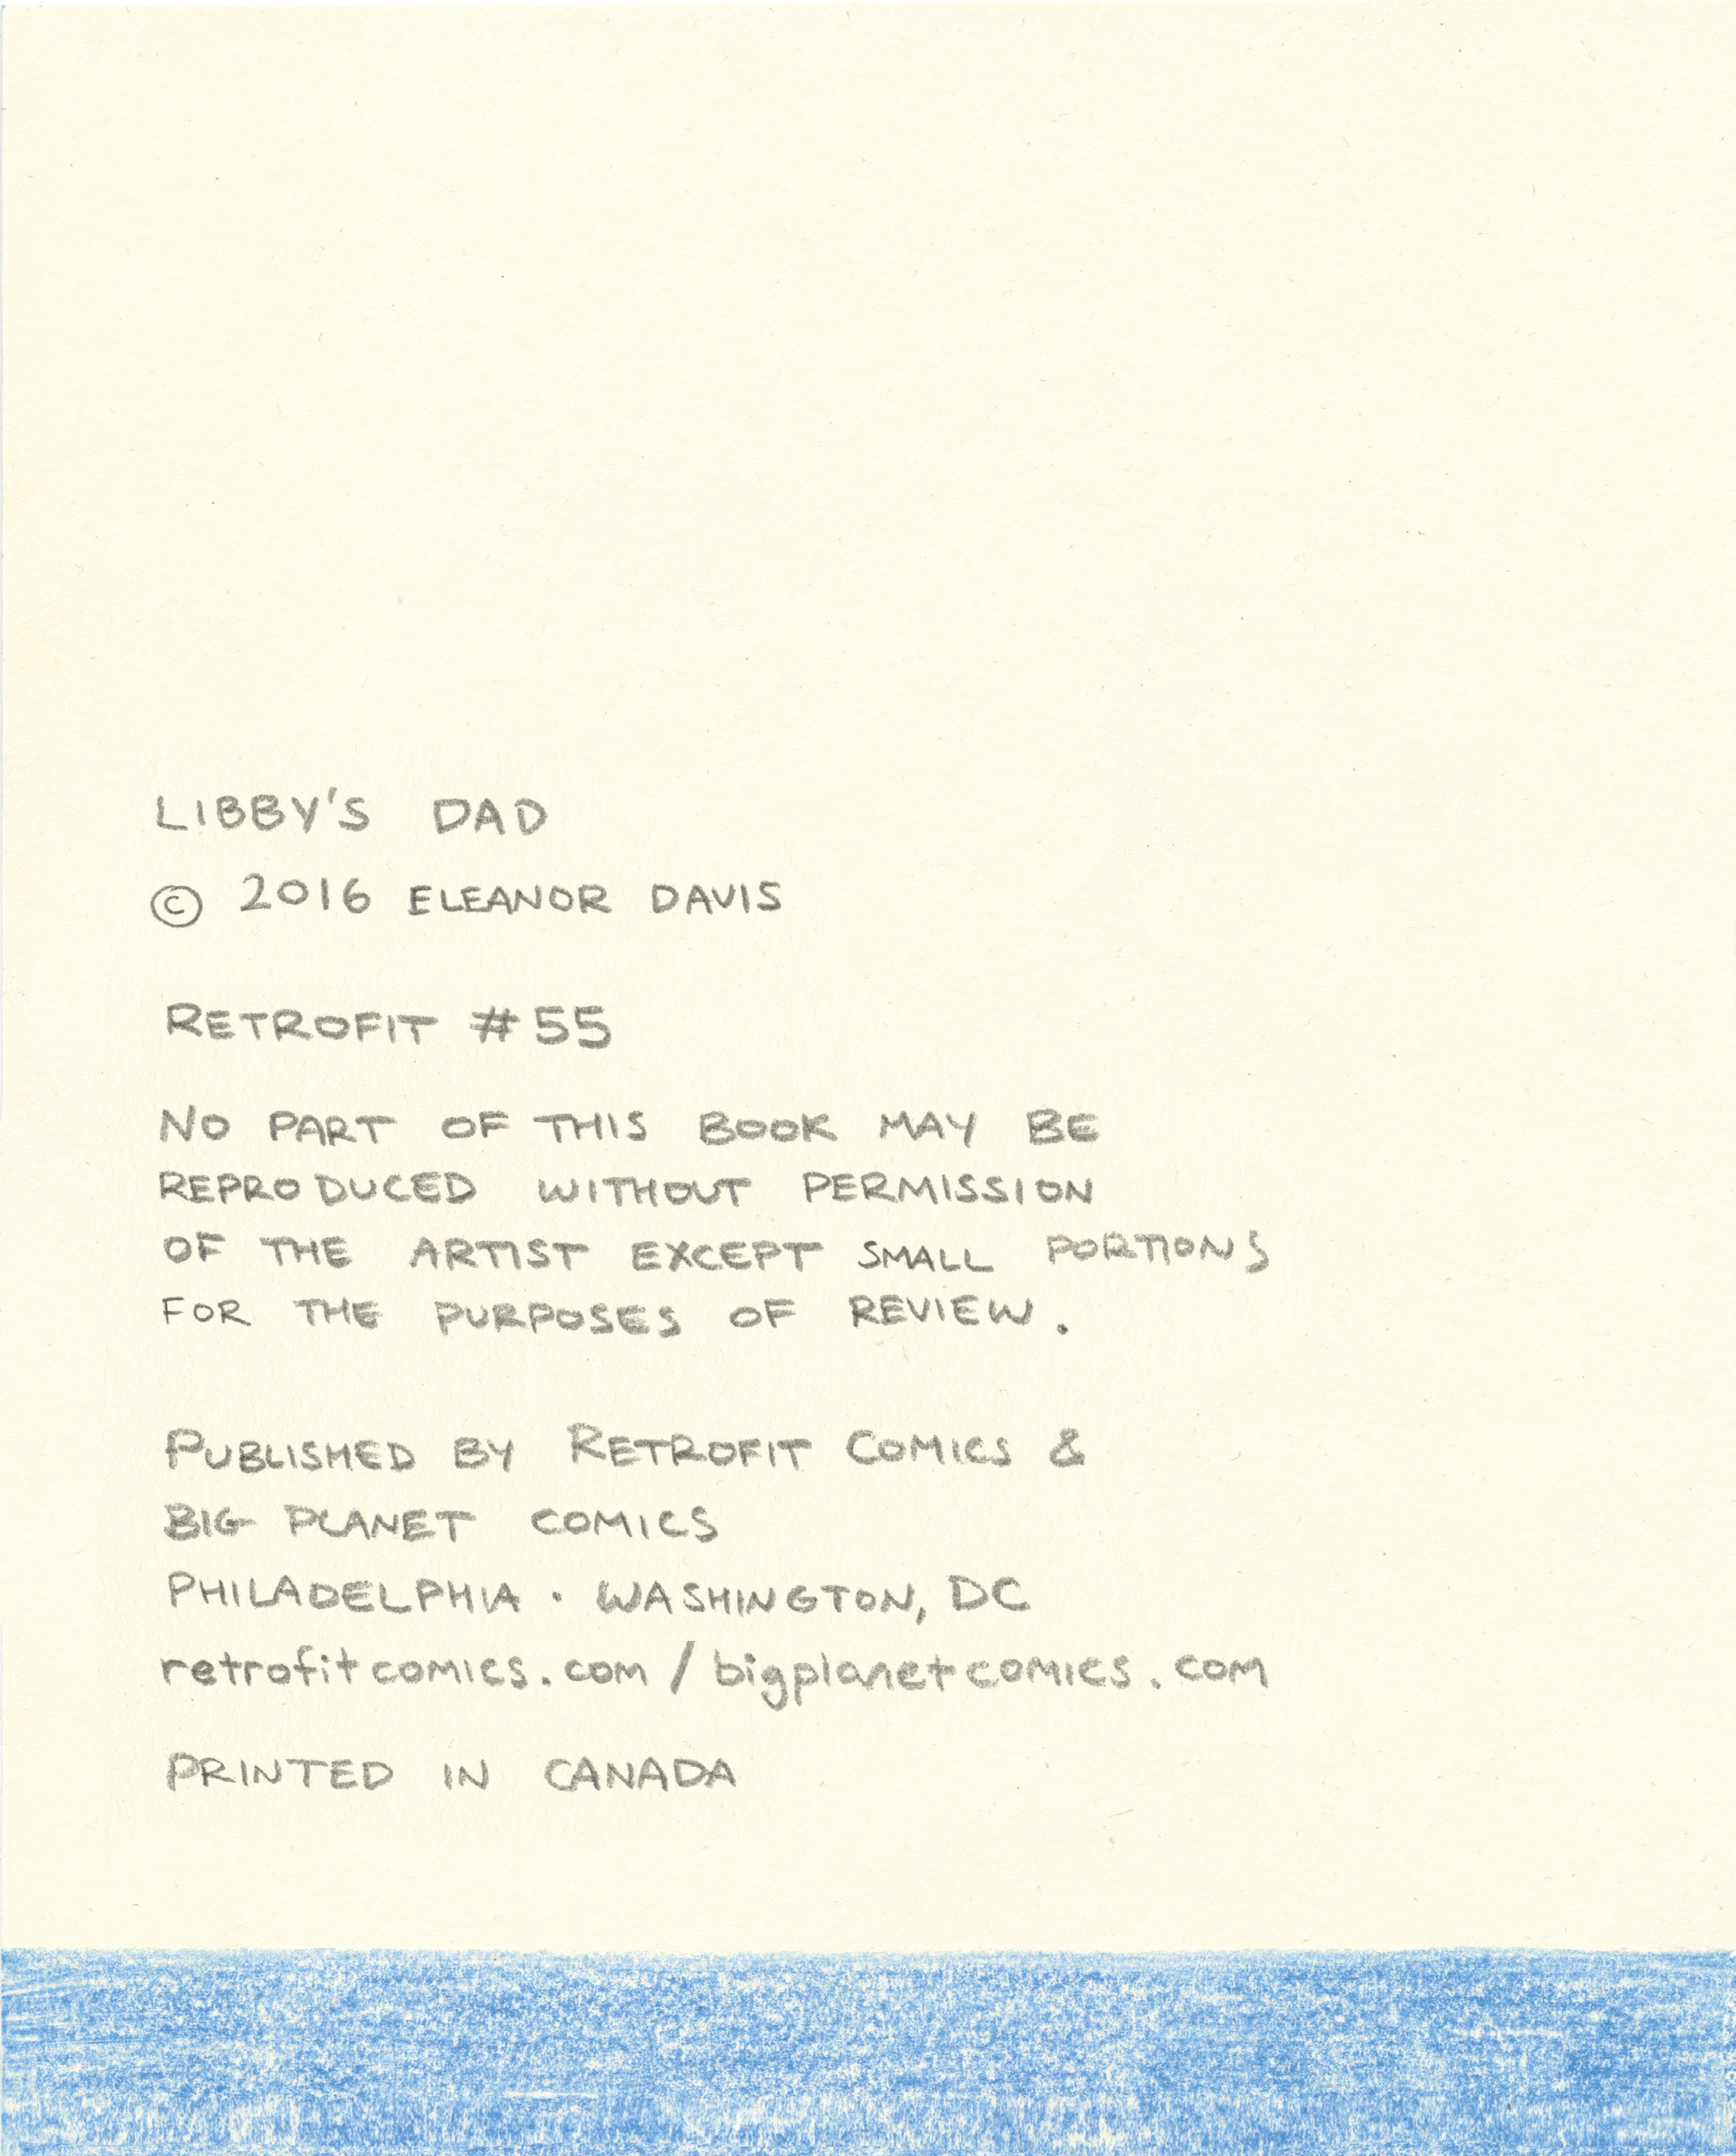 LIBBY'S DAD
© 2016 ELEANOR DAVIS
RETROFIT #55
NO PART OF THIS BOOK MAY BE
REPRODUCED WITHOUT PERMISSION
OF THE ARTIST EXCEPT SMALL PORTIONS
FOR THE PURPOSES OF REVIEW.
PUBLISHED BY RETROFIT COMICS &
BIG PLANET COMICS
PHILADELPHIA · WASHINGTON, DC
retrofitcomics.com / bigplanetcomics.com
PRINTED IN CANADA